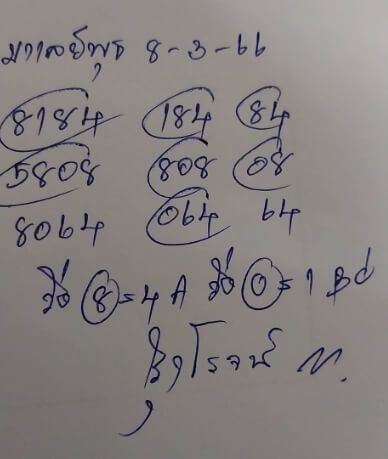 มาเลย์พุธ 8-3-66
8184 184 84
5808 808 08
8064 064 64
วิ่ง 8=4A วิ่ง 0=1Bd